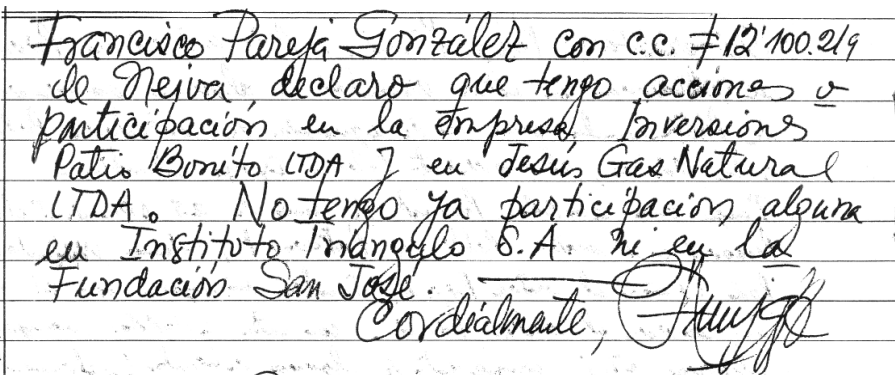 Francisco Pareja González con c.c. #12'100.219
de Neiva declaro que tengo acciones o
participación en la empresa Inversiones
Patio Bonito LTDA y en Jesús Gas Natural
LTDA. No tengo ya participación alguna
en Instituto Triángulo S.A. ni en la
Fundación San José.
Cordialmente,